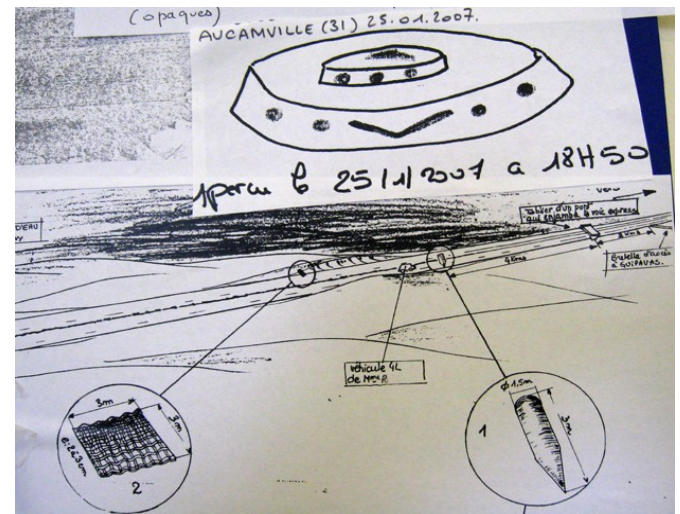 (opaques)
AUCAMVILLE (31) 25.01.2007.
Aperçu le 25/1/2007 a 18H50
D'EAU
Vers
Tablier d'un pont
qui enjambe la voie express
4Kms
Bretelle d'accès
à GUIPAVAS.
véhicule 4L
de Mme R
3m
3m
2
Ø 1,5m
3m
1